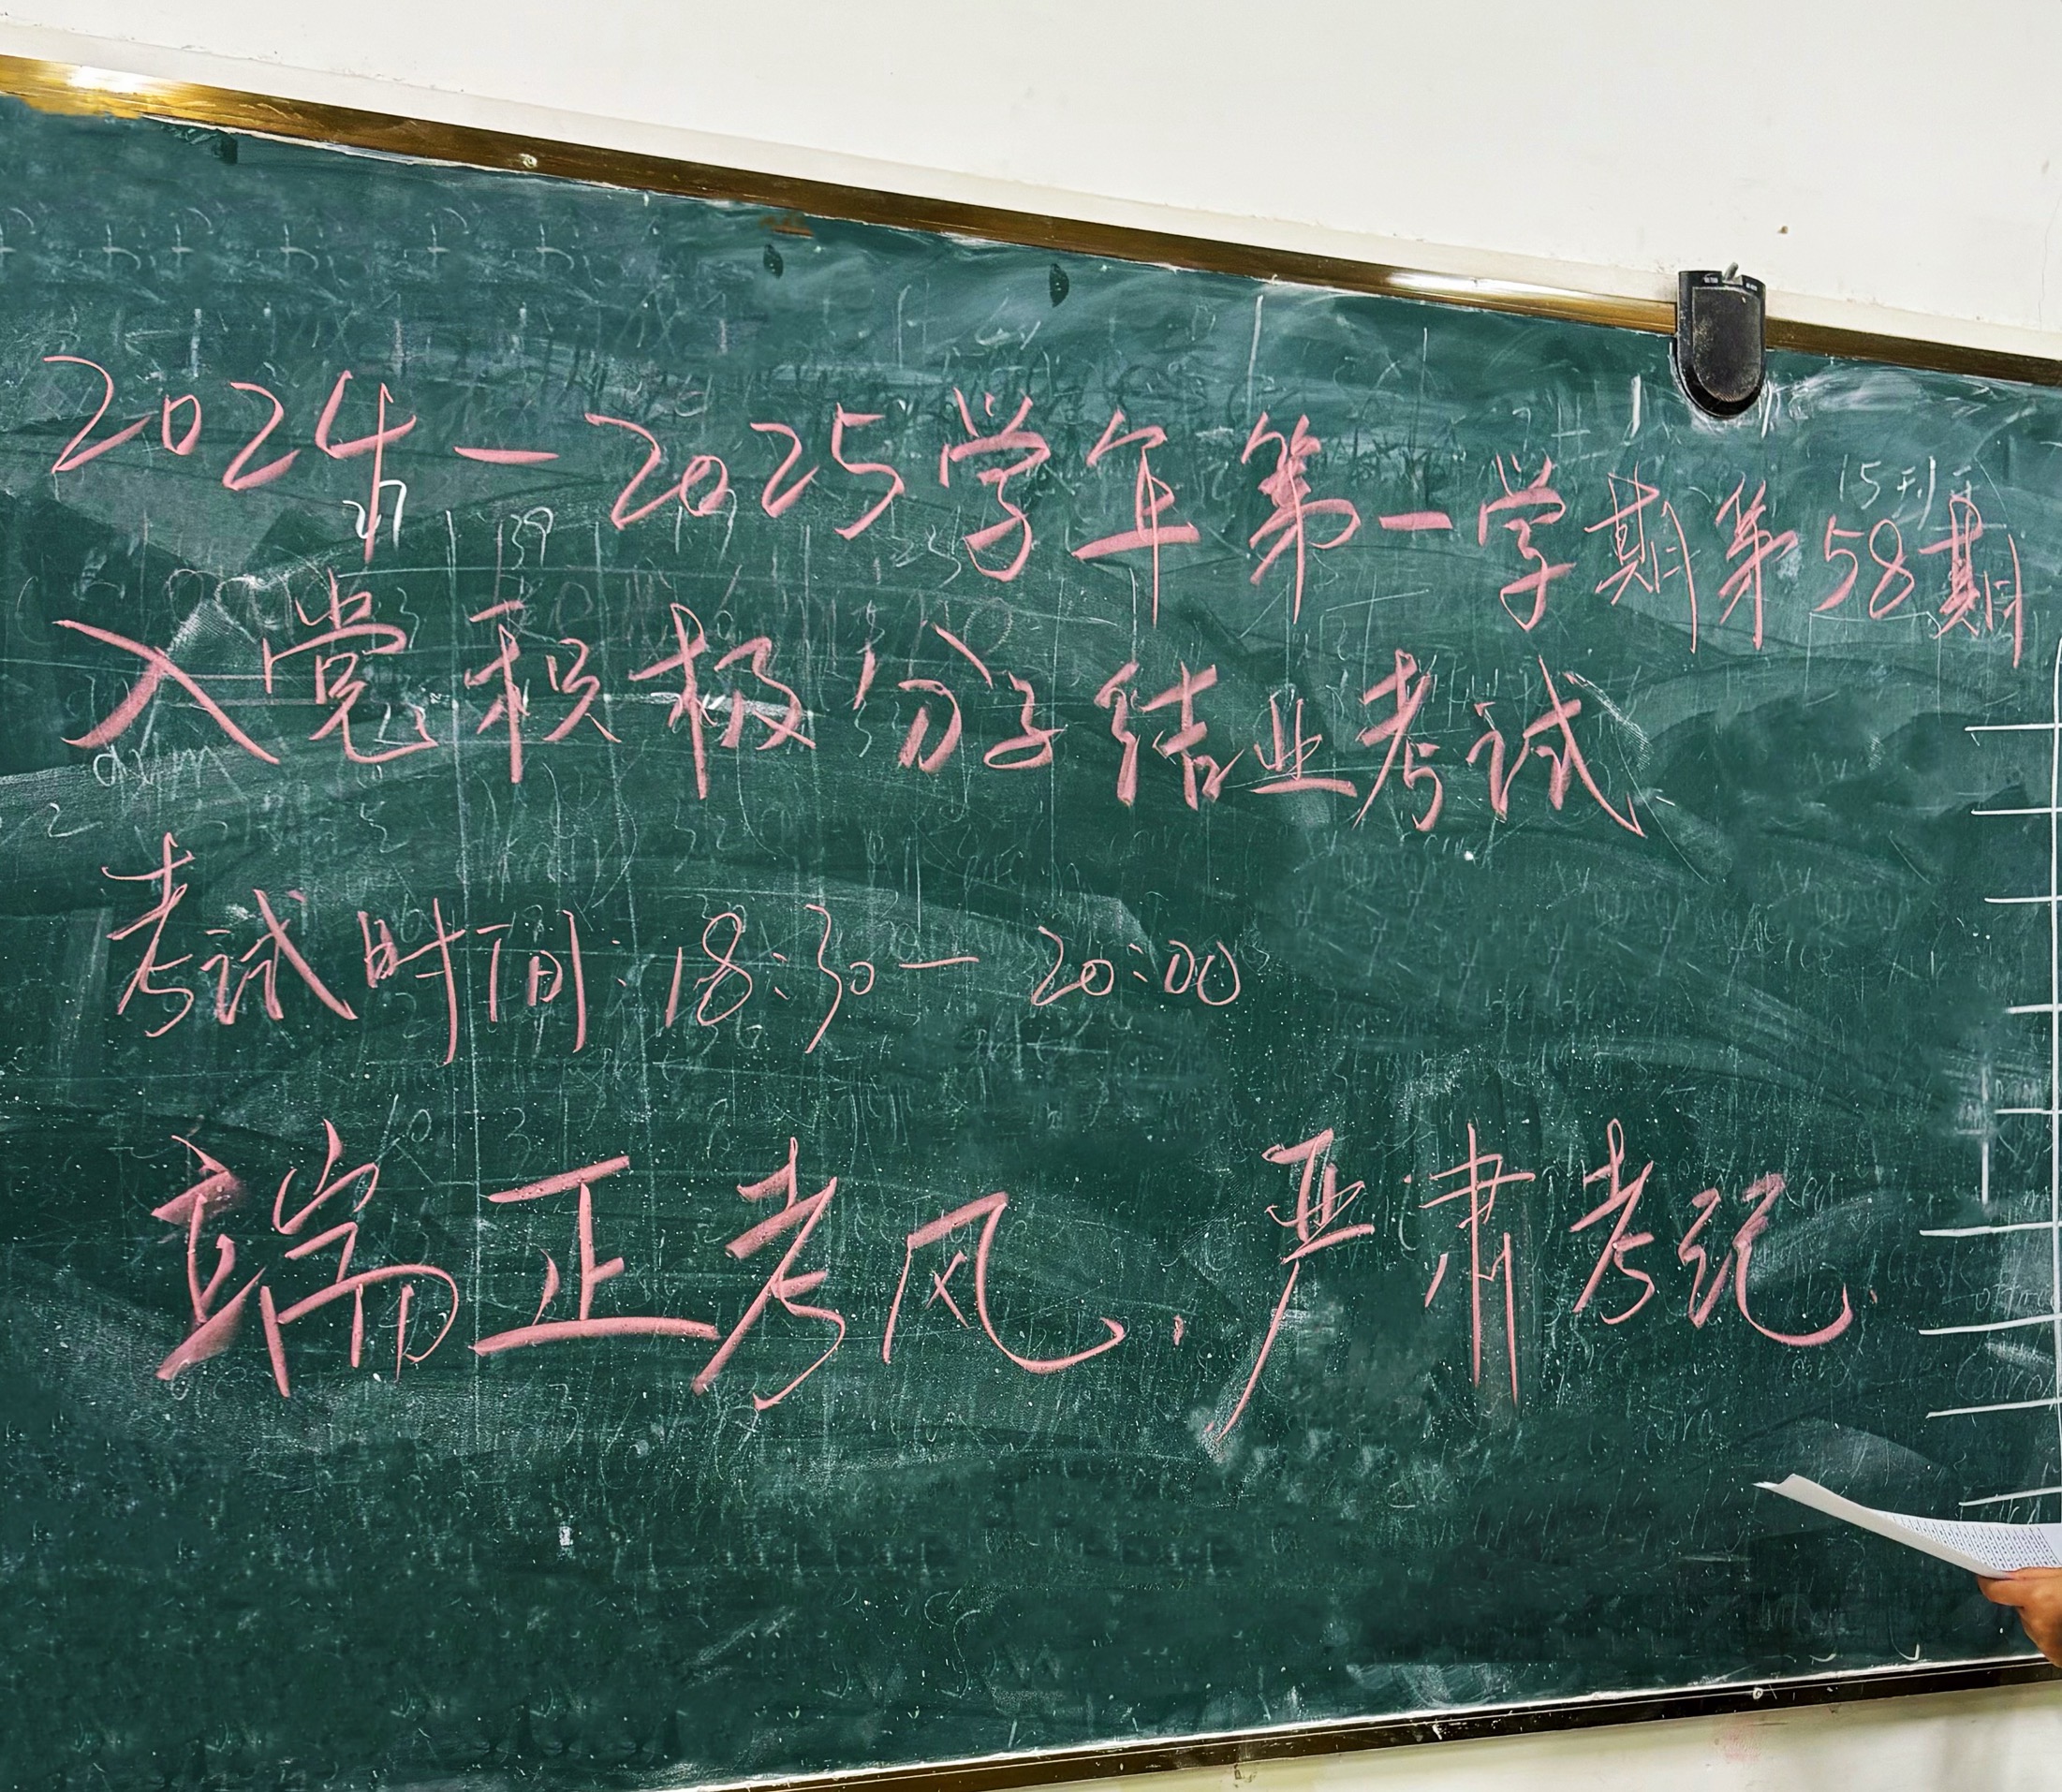 2024—2025学年第一学期第58期
入党积极分子结业考试
考试时间:18:30— 20:00
端正考风.严肃考纪.
15班